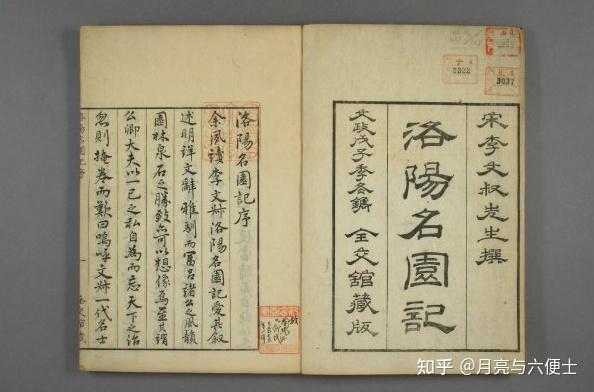 宋李文叔先生撰
洛陽名園記
文政戊子季冬鐫 全交館藏版
洛陽名園記序
余夙讀李文叔洛陽名園記愛其叙
述明詳文辭雅馴而冨呂諸公之風韻
園林泉石之勝致亦可以想像焉至其謂
公卿大夫以一己之私自為而忘天下之治
忽則掩卷而歎曰嗚呼文叔一代名士
3322
3037
知乎 @月亮与六便士